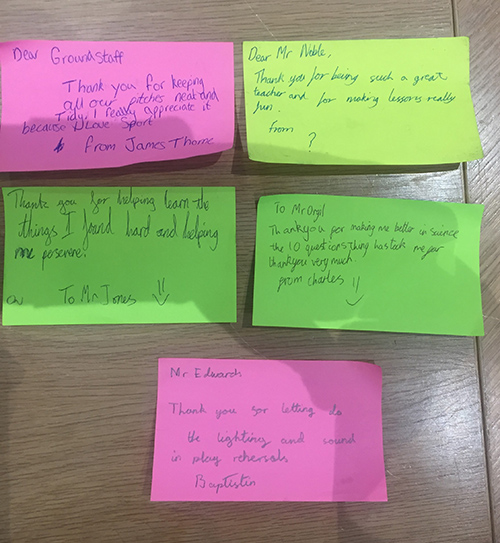 Dear Groundstaff
Thank you for keeping
all our pitches neat and
Tidy, I really appreciate it
because I Love Sport
From James Thorne
Dear Mr Noble,
Thank you for being such a great
teacher and for making lessons really
fun.
from
?
Thank you for helping learn the
things I found hard and helping
me persevere.
To Mr Jones
To Mr Orgil
Thankyou for making me better in science
the 10 questions thing has me far
thankyou very much.
from charles
Mr Edwards
Thank you for letting do
the lighting and sound
in play rehersals
Baptistin